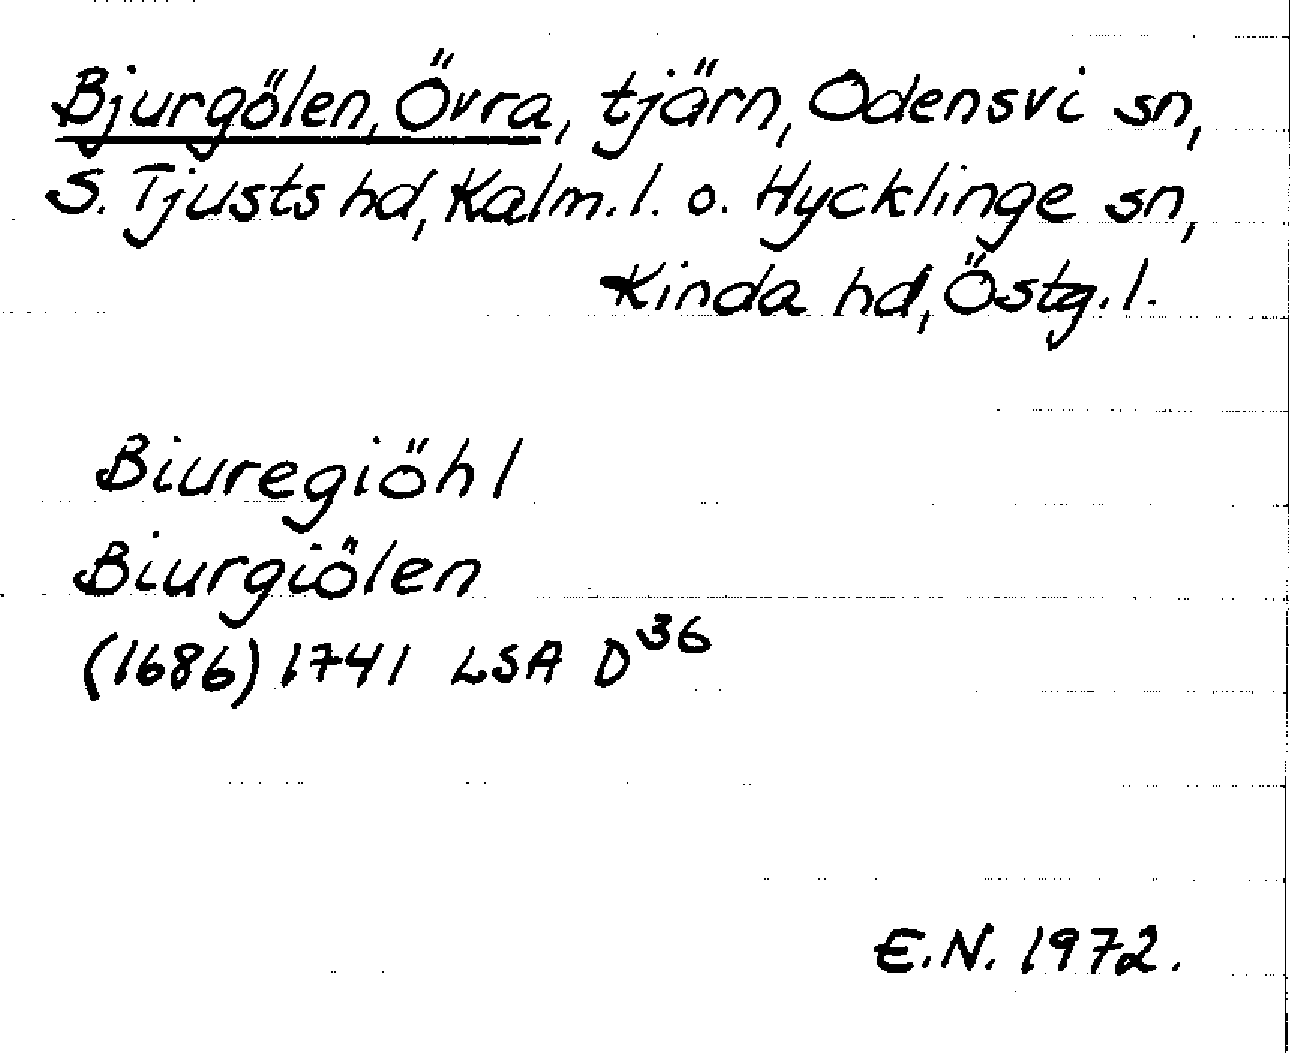 Bjurgölen, Övra, tjärn, Odensvi sn,
S. Tjusts hd, Kalm. l. o. Hycklinge sn,
Kinda hd, Östg. l.
Biuregiöhl
Biurgiölen
(1686) 1741 LSA D³⁶
E.N. 1972.